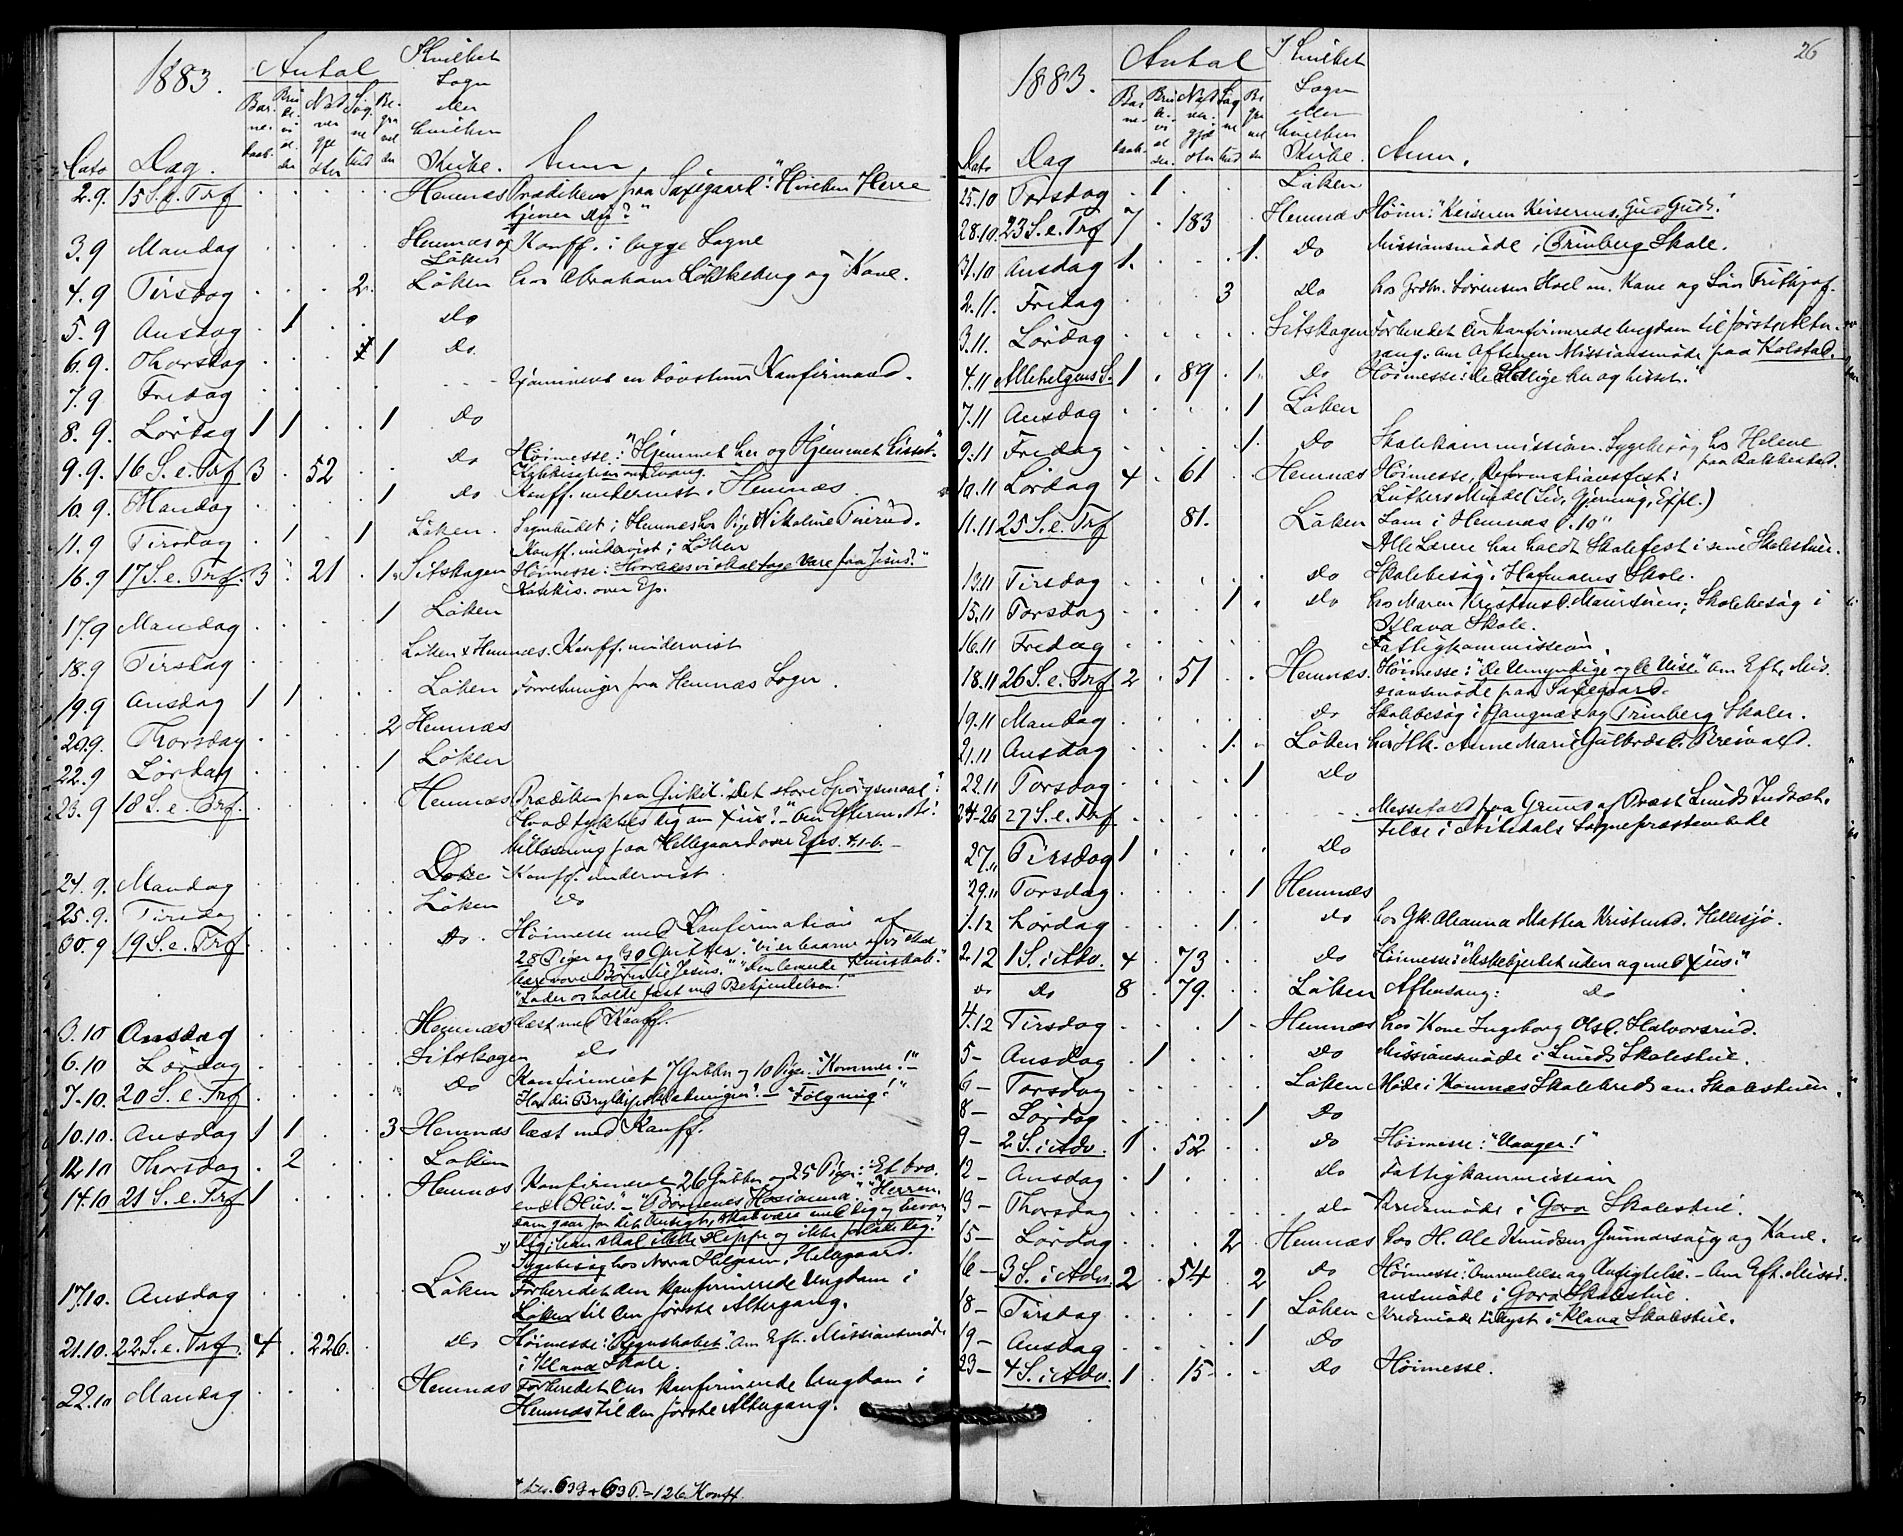 1883.
Antal
I hvilket
Sogn
eller
hvilken
Kirke.
Dato Dag. Anm
2.9. 15 S. e. Trf Hemnæs Prædiken paa Saxegaard: "Hvilken Herre
tjener Du?"
3.9 Mandag Hemnæs og Løken Konff. i begge Sogne
4.9 Tirsdag 2. Løken hos Abraham og Kone.
5.9 Onsdag 1 do
6.9 Thorsdag 1 Do.
7.9 Fredag en døvstum Konfirmand.
8.9. Lørdag 1 1 1 Do
9.9. 16 S. e. Trf 3 52 Do Høimesse: "Hjemmet her og Hjemmet hisset"
over Evang.
10.9. Mandag 1 Do Konff. undervist i Hemnæs.
11.9 Tirsdag 1 1 Løken. Sognebudet i Hemnæs hos Pige Nikoline
Konff. undervist i Løken
16.9 17 S. e. Trf. 3 21 1 Setskogen Høimesse: Hvorledes vi skal tage Vare paa Jesus?"
Katekis. over Ep.
17.9 Mandag 1 Løken
18.9 Tirsdag Løken & Hemnæs. Konff. undervist
19.9 Onsdag 1 1 Løken Forretninger fra Hemnæs Sogn.
20.9. Thorsdag 2 Hemnæs
22.9 Lørdag 1 Løken
23.9 18 S. e. Trf. Hemnæs Prædiken paa "Det store Spørgsmaal:
Hvad tykkes dig om Xtus?" Om Efterm.
paa Hellegaard over Efes. 4.1-6.
24.9. Mandag Do Konff. undervist.
25.9. Tirsdag Løken do
30.9 19 S. e. Trf. Do. Høimesse med Konfirmation af
28 Piger og 30 Gutter.
"Lader os holde fast ved Bekjendelsen!"
3.10 Onsdag Hemnæs læst med Konff.
6.10 Lørdag Setskogen do
7.10. 20 S. e. Trf Do Konfirmeret 7 Gutter og 10 Piger. "Kommer!" –
"Følg mig!"
10.10. Onsdag 1 1 3 Hemnæs læst med Konff.
12.10 Thorsdag 2 Løken
14.10 21 S. e. Trf 1 Hemnæs Konfirmeret 26 Gutter og 25 Piger:
Hus. – "Børnenes Hosianna." "Herren
som gaar for dit Ansigt, skal være med dig,
han skal ikke slippe og ikke forlade dig."
Sygebesøg hos Nora Helgesen, Helegaard.
17.10. Onsdag Løken Forberedet den konfirmerede Ungdom i
Løken til den første Altergang.
21.10. 22 S. e. Trf. 4 226. do Høimesse: "Regnskabet". Om Eft. Missionsmøde
i Klava Skole.
22.10 Mandag Hemnæs Forberedet den konfirmerede Ungdom i
Hemnæs til den første Altergang.
63 G + 63 P. = 126 Konff.
26
1883.
Antal
I hvilket
Sogn
eller
hvilken
Kirke.
Dato Dag Anm.
25.10 Torsdag 1 Løken
28.10. 23 S. e. Trf 7 183 Hemnæs Høim: "Keiseren Keiserens, Gud Guds."
31.10 Onsdag 1. 1. Do Missionsmøde i Trinberg Skole.
2.11. Fredag 3 Do hos Grdbr. Sørensen Hoel m. Kone og Søn Frithjof.
3.11. Lørdag Setskogen Forberedet den konfirmerede Ungdom til første Alter-
gang. Om Aftenen Missionsmøde paa Kolstad.
4.11 Allehelgens S. 1 89 1 Do Høimesse: de Salige her og hisset."
7.11 Onsdag 1 Løken
9.11 Fredag 1. Do Skolekommission. Sygebesøg hos Helene
paa Rakkestad.
10.11 Lørdag 4 61 Hemnæs Høimesse, Reformationsfest:
Luthers Minde (Liv, Gjerning, Expl.)
11.11 25 S. e. Trf 81. Løken Som i Hemnæs d. 10"
Alle Lærere har holdt Skolefest i sine Skolestuer.
13.11 Tirsdag do Skolebesøg i Hofmoens Skole.
15.11 Torsdag 1 do hos Maren Kristensd. Skolebesøg i
Klava Skole.
16.11 Fredag Fattigkommission.
18.11 26 S. e. Trf 2 51 Hemnæs. Høimesse: "De Umyndige og de Vise." Om Eft. Mis-
sionsmøde paa Saxegaard.
19.11 Mandag do Skolebesøg i Gangnæs og Trinberg Skoler.
21.11 Onsdag 1. Løken hos Hk. Anne Marie Gulbrdsd.
22.11 Torsdag 1 Do
24-26 27 S. e. Trf Messefald paa Grund af Præst Lunds Indsæt-
telse i Nitedals Sognepræstembede
27.11 Tirsdag 1 Do
29.11 Torsdag 1 Hemnæs
1.12 Lørdag 1. do hos Gk. Oleanna Mathea Kristensd. Hellesjø.
2.12 1 S. i Adv. 4 73 do Høimesse: uden og med Xtus."
Do Do 8 79. Løken Aftensang: Do
4.12 Tirsdag 1 Hemnæs hos Kone Ingeborg Olsd. Halvorsrud.
5– Onsdag 1 Do Missionsmøde i Lunds Skolestue.
6– Torsdag Løken Møde i Komnæs Skolekreds om Skolestuen.
8– Lørdag 1 Do
9– 2 S. i Adv. 1 52 do Høimesse: "Vaager!"
12– Onsdag 1 Do Fattigkommission
13– Thorsdag do Kredsmøde i Gora Skolestue.
15– Lørdag 2 Hemnæs hos H. Ole Knudsen og Kone.
16– 3 S. i Adv. 2 54 2 do Høimesse: Omvendelse og – Om Eft. Missi-
onsmøde i Gora Skolestue.
18– Tirsdag 1 Løken Kredsmøde i Klava Skolestue.
19– Onsdag 1 Do
23– 4 S. i Adv. 1 15 Do Høimesse.